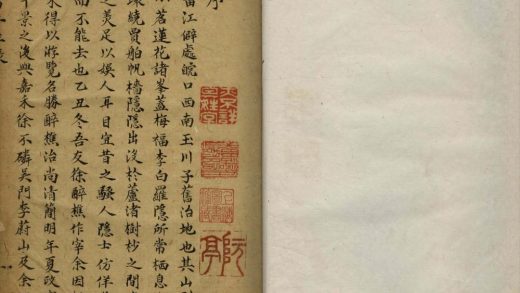 序
雷江僻處皖口西南玉川子舊治地也其山
茗蓮花諸峯蓋梅福李白羅隱所常棲息
環繞賈舶帆檣隱隱出沒於蘆渚樹杪之間
之羙足以娛人耳目宜昔之騷人隱士仿佯
而不能去也乙丑冬吾友徐醉樵作宰余因
來得以游覽名勝醉樵治尚清簡明年夏政
景之復與嘉禾徐不磷吳門李蔚山及余
阮亭